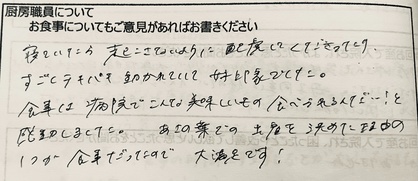 厨房職員について
お食事についてもご意見があればお書きください
寝ていたら起こさないように配慮してくださったり
すごくテキパキ動かれていて好印象でした。
食事は病院でこんな美味しいもの食べられるんだ…!と
感動しました。 あの業での出産を決めた理由の
1つが食事だったので 大満足です!